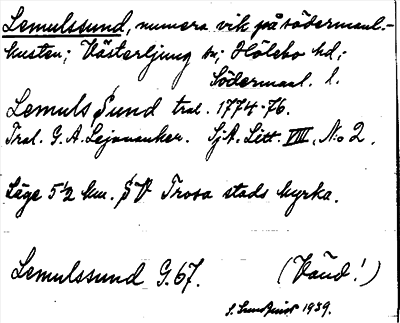 Lemulssund, numera vik på södermanl.-
kusten; Västerljung sn; Hölebo hd;
Södermanl. l.
Lemuls Sund tral. 1774-76.
Tral. G. A. Lejonanker. SjA. Litt. VIII, No 2.
Läge 5½ km. SV Trosa stads kyrka.
Lemulssund G. 67. (Vänd!)
S. Sundquist 1939.